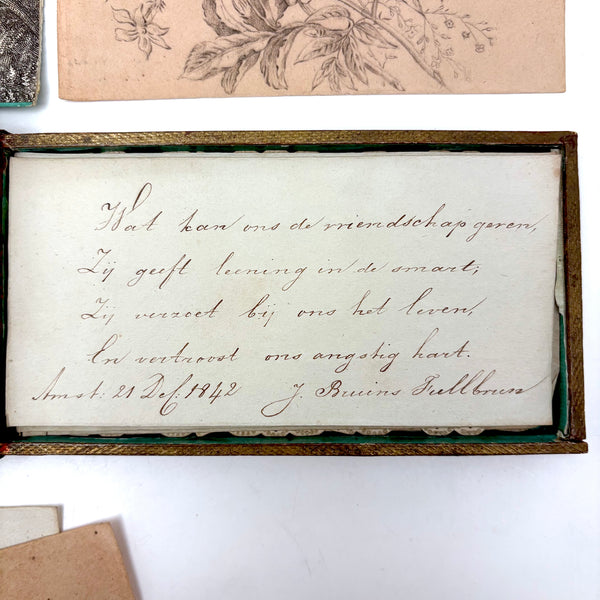 Wat kan ons de vriendschap geven,
Zij geeft leening in de smart;
Zij verzoet bij ons het leven,
En vertroost ons angstig hart.
Amst: 21 Dec: 1842 J. Bruins